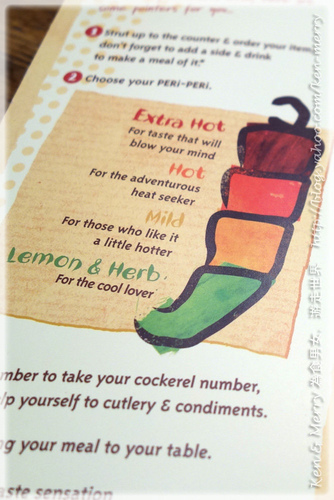 some pointers for you...
1 Strut up to the counter & order your item
don't forget to add a side & drink
to make a meal of it."
2 Choose your PERi-PERi.
Extra Hot
For taste that will
blow your mind
Hot
For the adventurous
heat seeker
Mild
For those who like it
a little hotter
Lemon & Herb
For the cool lover
mber to take your cockerel number,
lp yourself to cutlery & condiments.
ng your meal to your table.
aste sensation